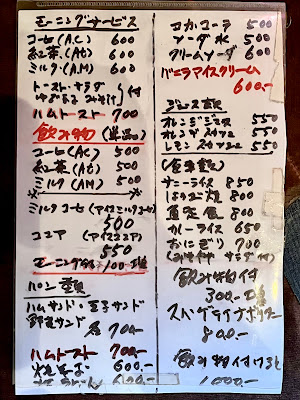 モーニングサービス
コーヒ(AC) 600
紅茶(At) 600
ミルク(AM) 600
トースト・サラダ
ゆでたまご みそ汁 付
ハムトースト 700
飲み物(単品)
コーヒ(AC) 500
紅茶(At) 500
ミルク(AM) 500
ミルクコーヒ(アイスミルクコーヒ)
500
ココア (アイスココア)
550
モーニングタイム 100円増
パン類
ハムサンド・玉子サンド
野菜サンド 各700
ハムトースト 700
焼そば 600
600
コカコーラ 500
ソーダ水 500
クリームソーダ 600
バニラアイスクリーム
600
ジュース類
オレンジジュース 550
オレンジスカッシュ 550
レモンスカッシュ 550
(食事類)
サニーライス 850
800
800
カレーライス 650
おにぎり 700
(みそ汁 サラダ付)
飲み物付
300円増
スパゲティナポリタン
800
飲み物付けると
1000